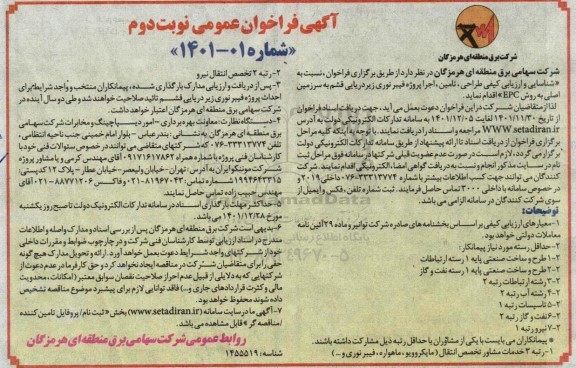 آگهی فراخوان عمومی نوبت دوم
«شماره ۰۱-۱۴۰۱»
شرکت برق منطقه ای هرمزگان
شرکت سهامی برق منطقه ای هرمزگان در نظر دارد از طریق برگزاری فراخوان، نسبت به
«شناسایی و ارزیابی کیفی طراحی، تامین، اجرا پروژه فیبر نوری زیر دریایی قشم به سرزمین
اصلی به روش EPC» اقدام نماید.
لذا از متقاضیان شرکت در این فراخوان دعوت بعمل می آید، جهت دریافت اسناد فراخوان
از تاریخ ۱۴۰۱/۱۱/۳۰ لغایت ۱۴۰۱/۱۲/۰۵ به سامانه تدارکات الکترونیکی دولت به آدرس
WWW.setadiran.ir مراجعه و اسناد را دریافت نمایند. با توجه به اینکه کلیه مراحل
برگزاری فراخوان از دریافت اسناد تا ارائه پیشنهاد از طریق سامانه تدارکات الکترونیکی دولت
برگزار می گردد، لازم است در صورت عدم عضویت قبلی شرکتها در سامانه فوق مراحل ثبت
نام در سایت مذکور انجام و نسبت به دریافت گواهی امضا الکترونیکی اقدام نمایند. شرکت
کنندگان می توانند جهت کسب اطلاعات بیشتر با شماره ۳۳۳۱۳۷۷۴-۰۷۶ داخلی ۲۰۱۹ و
در خصوص سامانه با داخلی ۳۰۰۰ تماس حاصل فرمایند. ثبت شماره تلفن، فکس و ایمیل از
سوی شرکت کنندگان در سامانه الزامی می باشد.
توضیحات:
۱-معیارهای ارزیابی کیفی بر اساس بخشنامه های صادره شرکت توانیر و ماده ۲۹ آئین نامه
معاملات دولتی خواهد بود.
۲-حداقل رسته مورد نیاز پیمانکار:
۲-۱-طرح و ساخت صنعتی پایه ۱ رسته ارتباطات
۲-۲-طرح و ساخت صنعتی پایه ۱ رسته نفت و گاز
۲-۳-رشته ارتباطات رتبه ۲
۲-۴-رشته آب رتبه ۲
۲-۵-تاسیسات رتبه ۱
۲-۶-نفت و گاز رتبه ۲
۲-۷-نیرو رتبه ۱
* پیمانکاران می بایست با یکی از مشاوران با حداقل رتبه ذیل مشارکت داشته باشند.
۱-رتبه ۳ خدمات مشاور تخصص انتقال (مایکروویو، ماهواره، فیبر نوری و ...)
۲-رتبه ۲ تخصص انتقال نیرو
۳-پس از دریافت و ارزیابی مدارک بارگذاری شده، پیمانکاران منتخب و واجد شرایط برای
احداث پروژه فیبر نوری زیر دریایی قشم تائید صلاحیت خواهند شد و طی دو سال آینده در
شرکت سهامی برق منطقه ای هرمزگان اعتبار خواهد داشت.
۴-دستگاه نظارت: معاونت بهره برداری - امور دیسپاچینگ و مخابرات شرکت سهامی
برق منطقه ای هرمزگان به نشانی: بندرعباس - بلوار امام خمینی جنب ناحیه انتظامی -
تلفن ۳۳۳۱۳۷۷۴-۰۷۶ که شرکتهای متقاضی می توانند در خصوص سئوالات فنی خود با
کارشناسان فنی پروژه با شماره همراه ۰۹۱۷۱۶۱۷۸۶۲ آقای مهندس کرمی و یا مشاور پروژه
شرکت مونیکو ایران به آدرس: تهران-خیابان ولیعصر-خیابان عطار-پلاک ۱۲ کدپستی:
شماره تماس: ۸۱۹۶۷۰۴۳-۰۲۱ و فاکس: ۸۸۷۷۱۲۰۶-۰۲۱ آقای
مهندس حبیب زاده تماس حاصل نمایند.
۵-حداکثر مهلت بارگذاری اسناد در سامانه تدارکات الکترونیک دولت تا صبح روز یکشنبه
مورخ ۱۴۰۱/۱۲/۲۸ می باشد.
۶-بدیهی است شرکت برق منطقه ای هرمزگان پس از بررسی اسناد و مدارک واصله و اطلاعات
مندرج در اسناد ارزیابی توسط کارشناسان فنی شرکت و در چارچوب ضوابط و مقررات داخلی
خود از شرکتهای واجد شرایط دعوت بعمل خواهد آورد. ارائه و تحویل مدارک هیچ گونه
حقی را برای متقاضیان شرکت در مناقصه ایجاد نخواهد کرد و حق کارفرما در عدم دعوت از
شرکتهایی که به دلایلی از قبیل عدم احراز صلاحیت نقصان سوابق معتبر (امکانات، محدودیت
مالی و کثرت قراردادهای جاری و...) فاقد توانایی لازم برای پیشبرد موضوع مناقصه تشخیص
داده شوند محفوظ خواهد بود.
۷-آگهی ما در سایت سامانه (www.setadiran.ir) بخش «ثبت نام/پروفایل تامین کننده
/مناقصه گر» قابل مشاهده می باشد.
روابط عمومی شرکت سهامی برق منطقه ای هرمزگان
شناسه: ۱۴۵۵۵۱۹